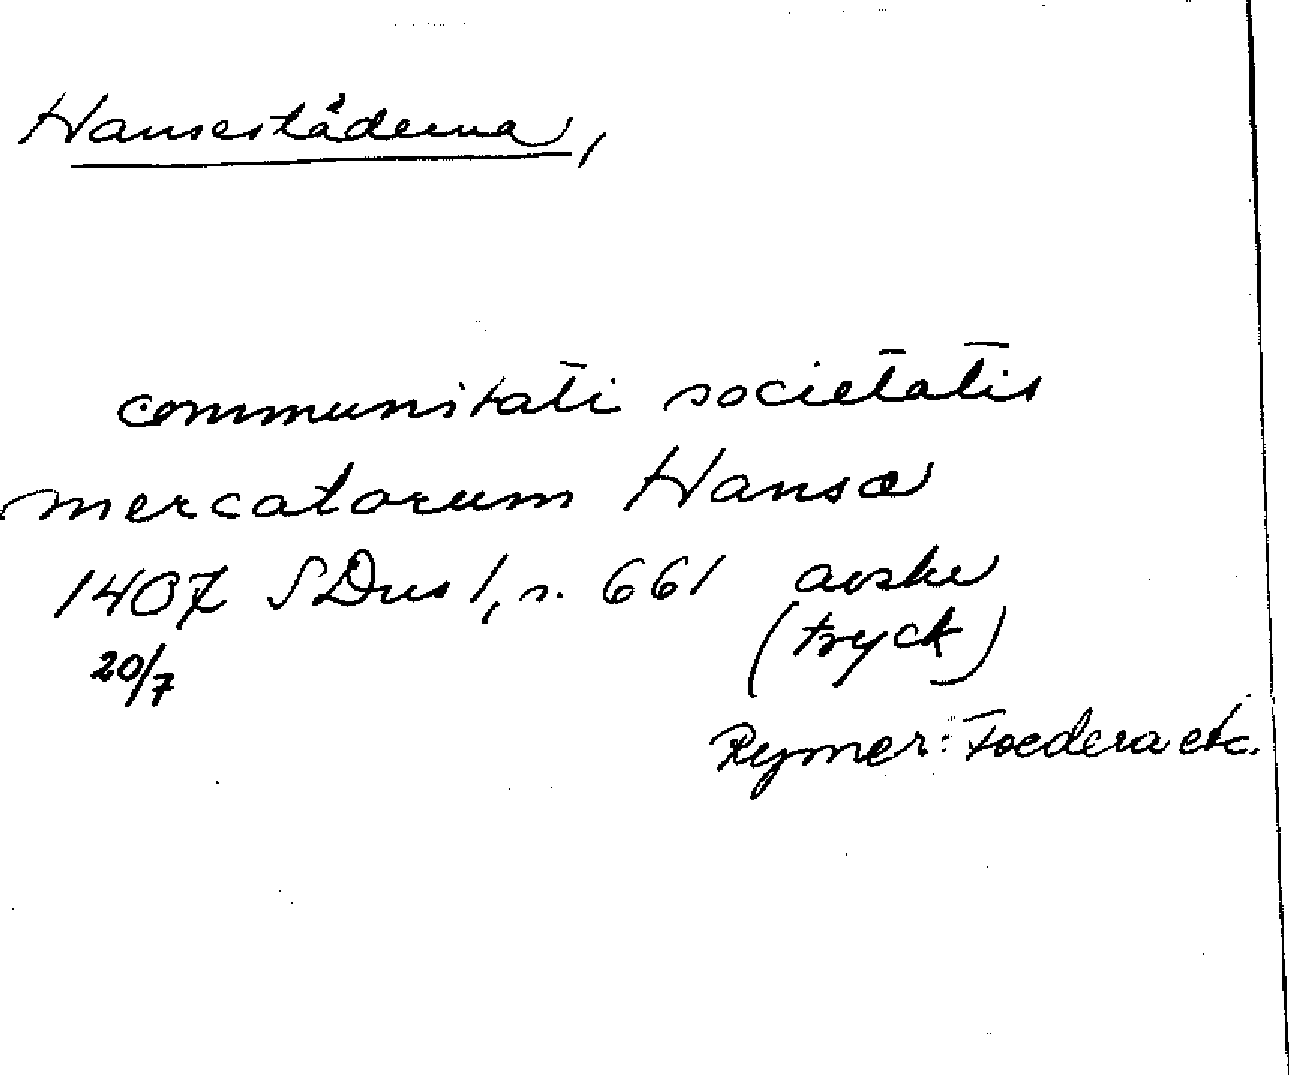 Hansestäderna,
communitati societatis
mercatorum Hansæ
1407 SDns 1, s. 661 avskr
(tryck)
20/7
Rymer: Foedera etc.